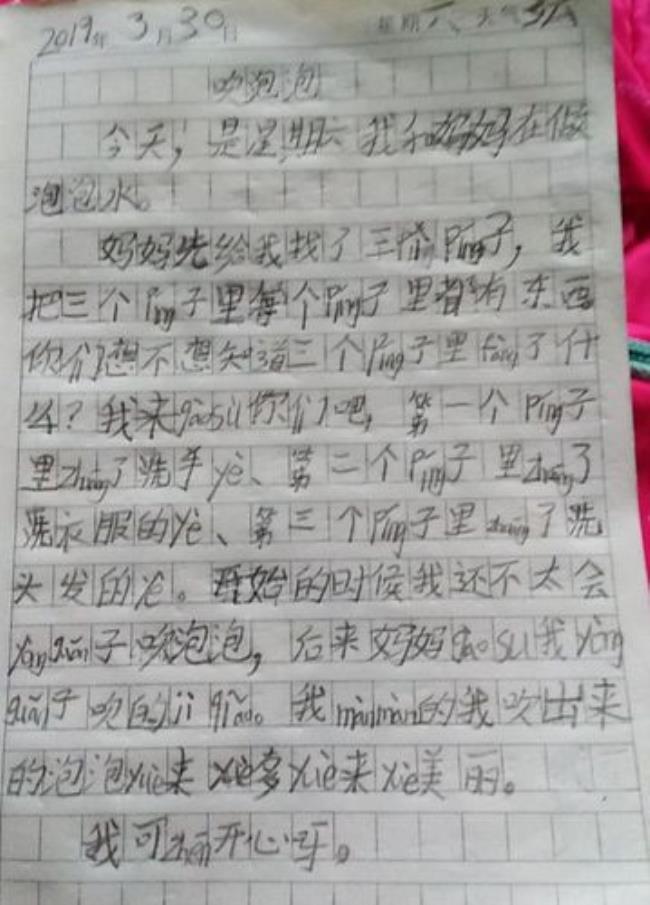 2019年 3月30日 星期六、天气
吹泡泡
今天，是星期六 我和妈妈在做
泡泡水。
妈妈先给我找了三个Píng子，我
把三个Píng子里每个Píng子里都有东西
你们想不想知道三个Píng子里fàng了什
么？我来gàosù你们吧，第一个Píng子
里zhuāng了洗手yè、第二个Píng子里zhuāng了
洗衣服的yè、第三个Píng子里zhuāng了洗
头发的yè。开始的时候我还不太会
yòng guǎn子吹泡泡，后来妈妈gào sù我yòng
guǎn子吹的jì qiǎo。我mànmàn的我吹出来
的泡泡yuè来yuè多yuè来yuè美丽。
我可zhēn开心呀。